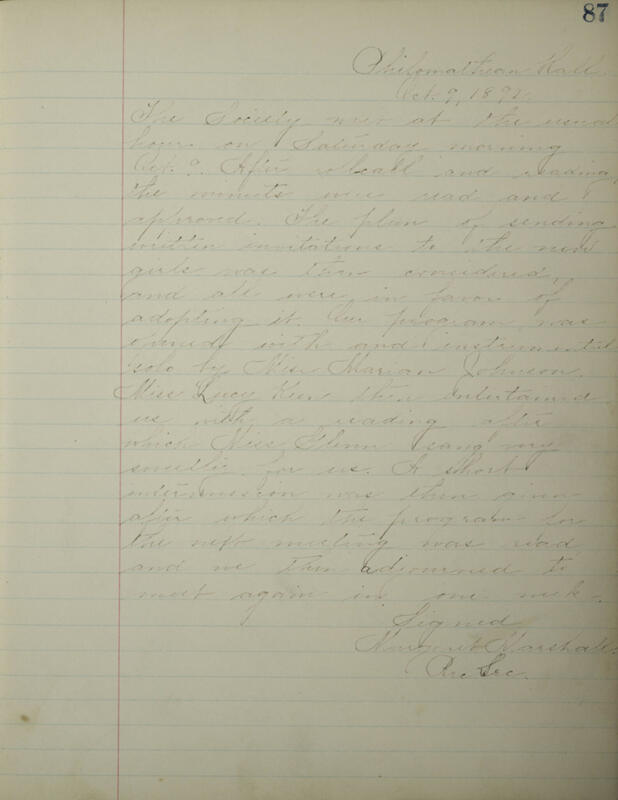 87
Philomathean Hall
Oct. 9, 1892.
The Society met at the usual
hour on Saturday morning
Oct. 9. After rollcall and reading,
the minuts were read and
approved. The plan of sending
written invitations to the new
girls was then considered,
and all were in favor of
adopting it. Our program was
opened with and instrumental
solo by Miss Marian Johnson.
Miss Lucy then entertained
us with a reading after
which Miss Glenn sang very
for us. A short
intermission was then given
after which the program for
the next meeting was read
and we then adjourned to
meet again in one week.
Signed
Margaret Marshall.
Rec Sec.